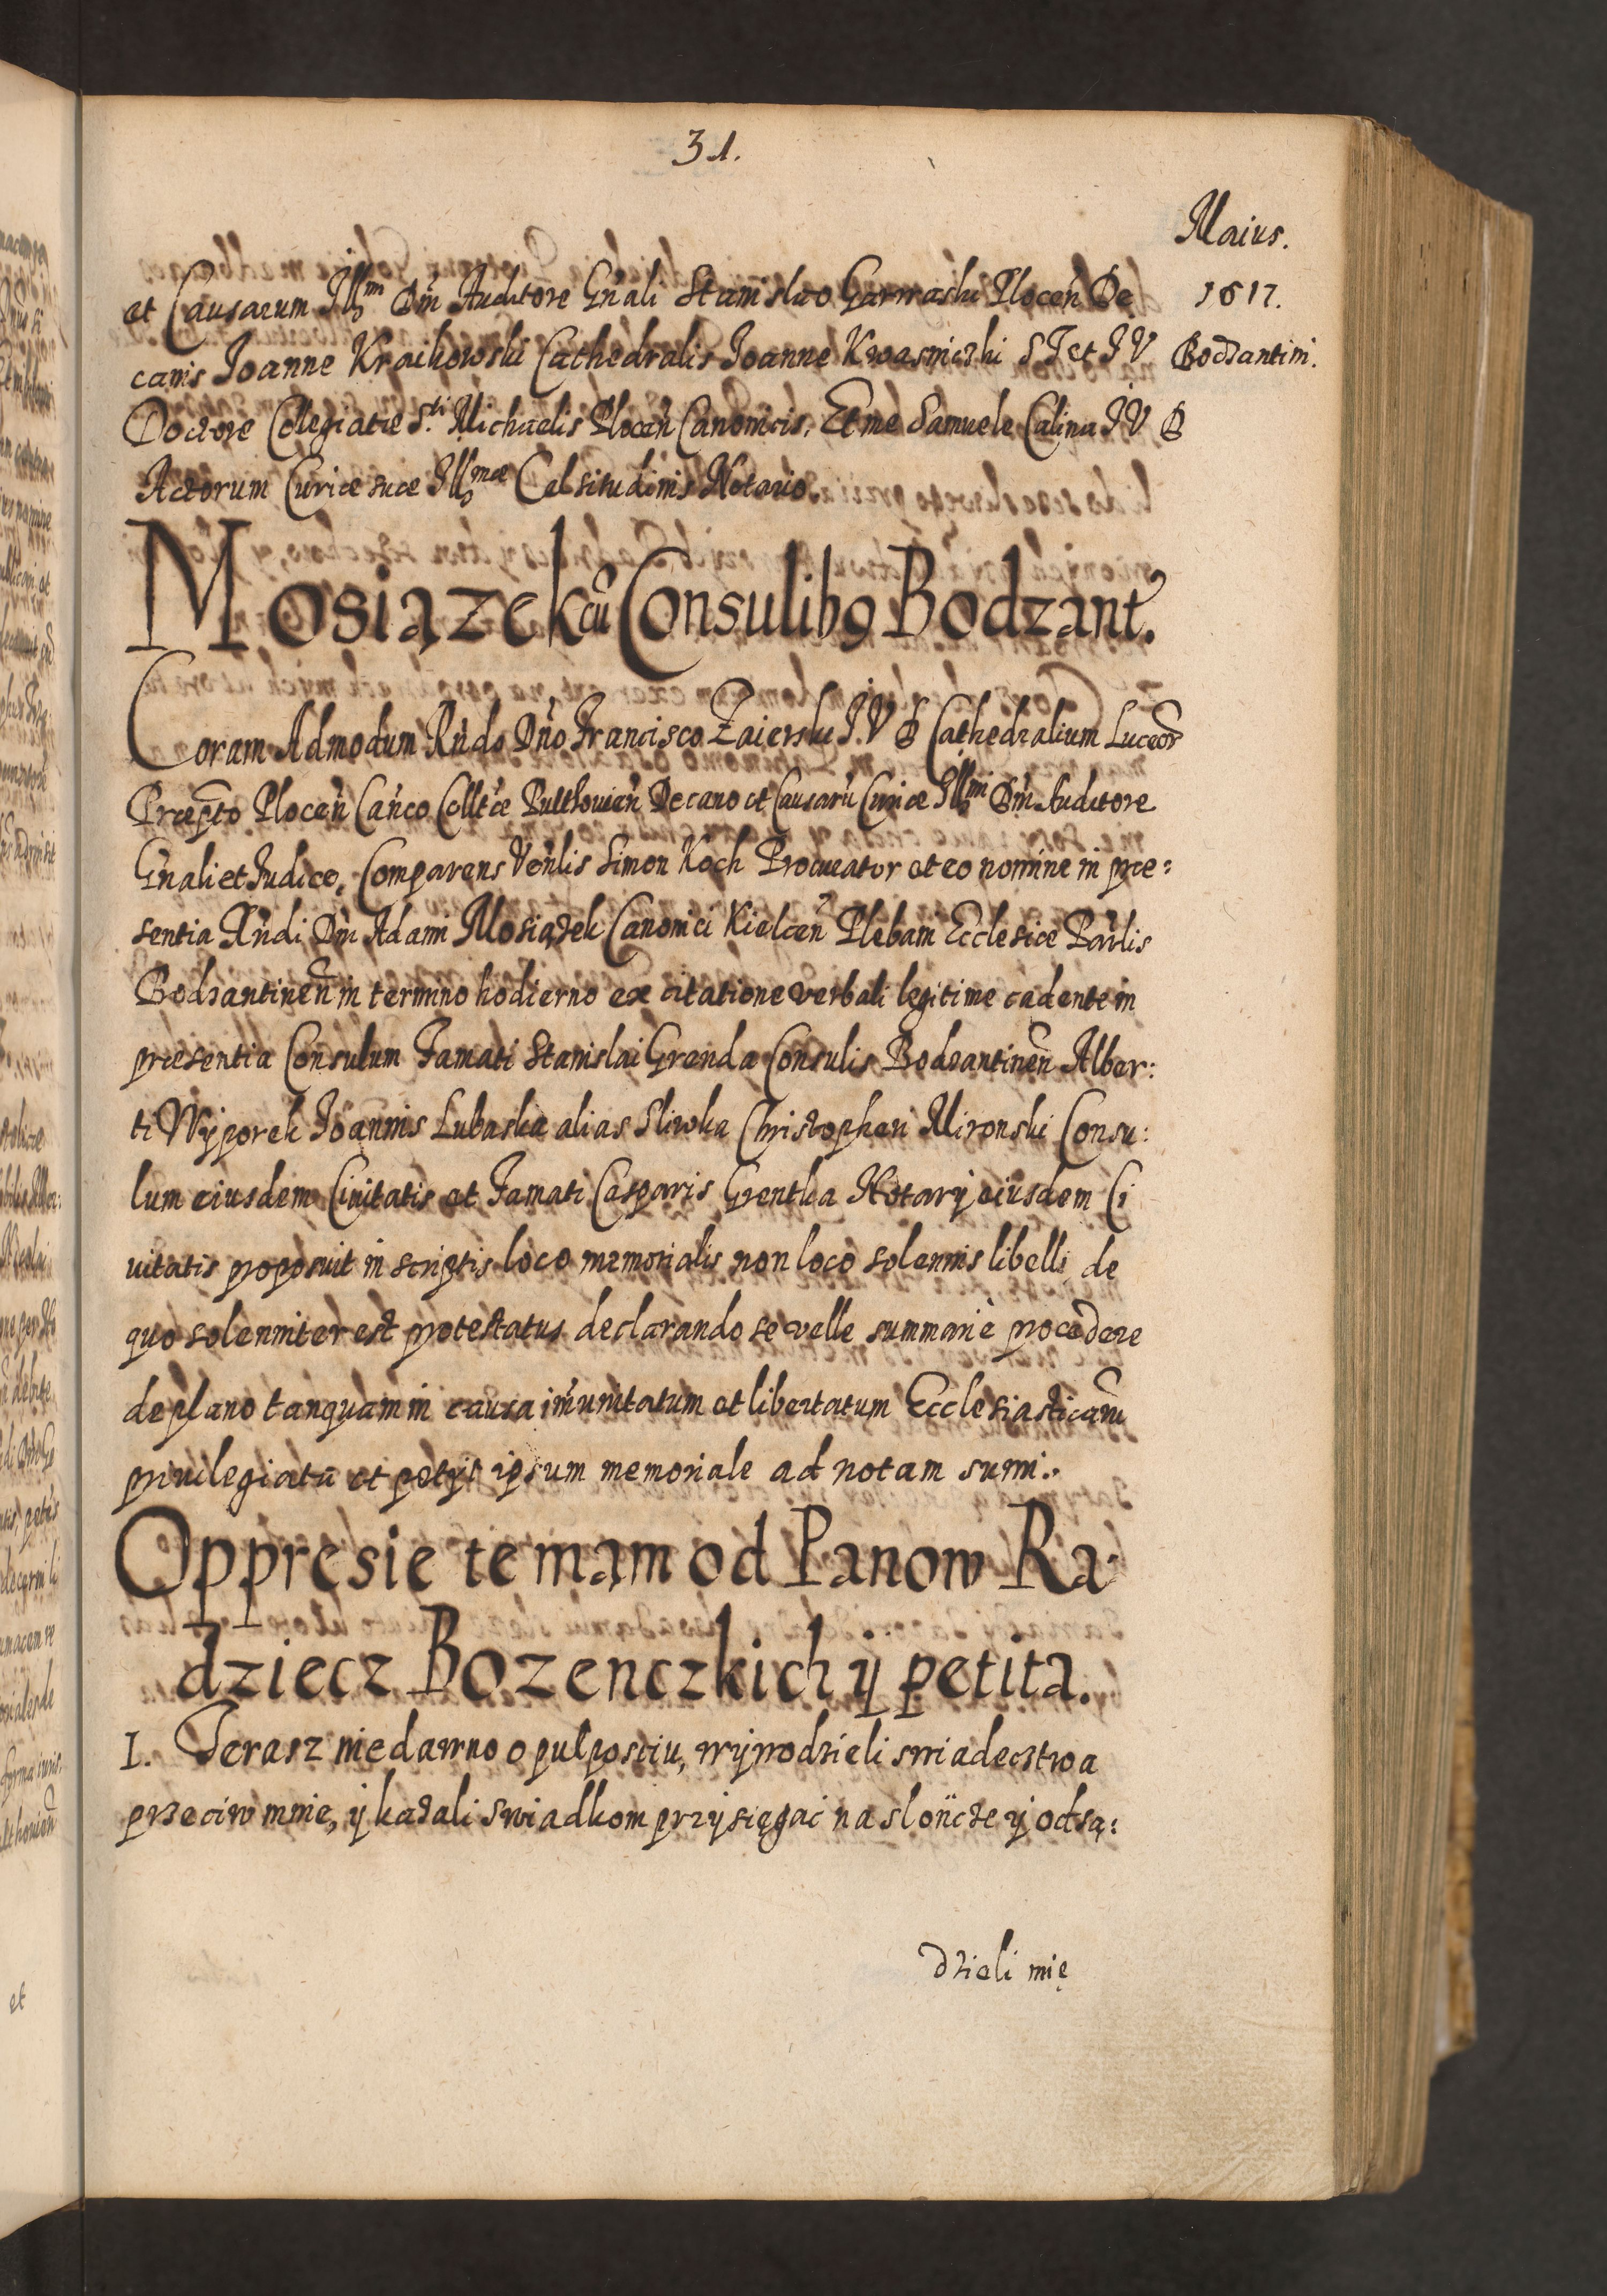 31.
Maius.
1617.
Bodzantini.
et Causarum Illmi Dni Auditore Gnali Stanislao Garwaski Plocen De
canis Joanne Kraikowski Cathedralis Joanne Kwasniczki S T et J V
Doctore Collegiatæ S.ti Michaelis Plocen Canonicis, Et me Samuele Calina J V D
Actorum Curiæ suæ Illmæ Celsitudinis Notario.
Mosiązek cū Consulibꝯ Bodzant.
Coram Admodum Rndo Dno Francisco Zaierski J. V D Cathedralium Luceor
Præpto Plocen Canco Colltæ Pulthovien Decano et Causarū Curiæ Illmi Dni Auditore
Gnali et Judice, Comparens Venlis Simon Koch Procurator et eo nomine in præ:
sentia Rndi Dni Adami Mosiązek Canonici Kielcen Plebani Ecclesiæ Parlis
Bodzantinen in termino hodierno ex citatione verbali legitime cadente in
præsentia Consulum Famati Stanislai Grenda Consulis Bodzantinen Alber:
ti Wyporek Joannis Lubaska alias Sliwka Christopheri Mironski Consu:
lum eiusdem Civitatis et Famati Casparis Grentka Notarij eiusdem Ci
uitatis proposuit in scriptis loco memorialis non loco solennis libelli de
quo solenniter est protestatus declarando se velle summariè procedere
de plano tanquam in causa imunitatum et libertatum Ecclesiasticarū
priuilegiatā et petijt ipsum memoriale ad notam sumi.
Oppresie te mam od Panow Ra-
dziecz Bozenczkich ij petita.
1. Terasz niedawno o pulposciu, wywodzieli swiadecztwa
przeciw mnie, ij kazali swiadkom przysięgać na slończe ij odsą:
dzieli mię